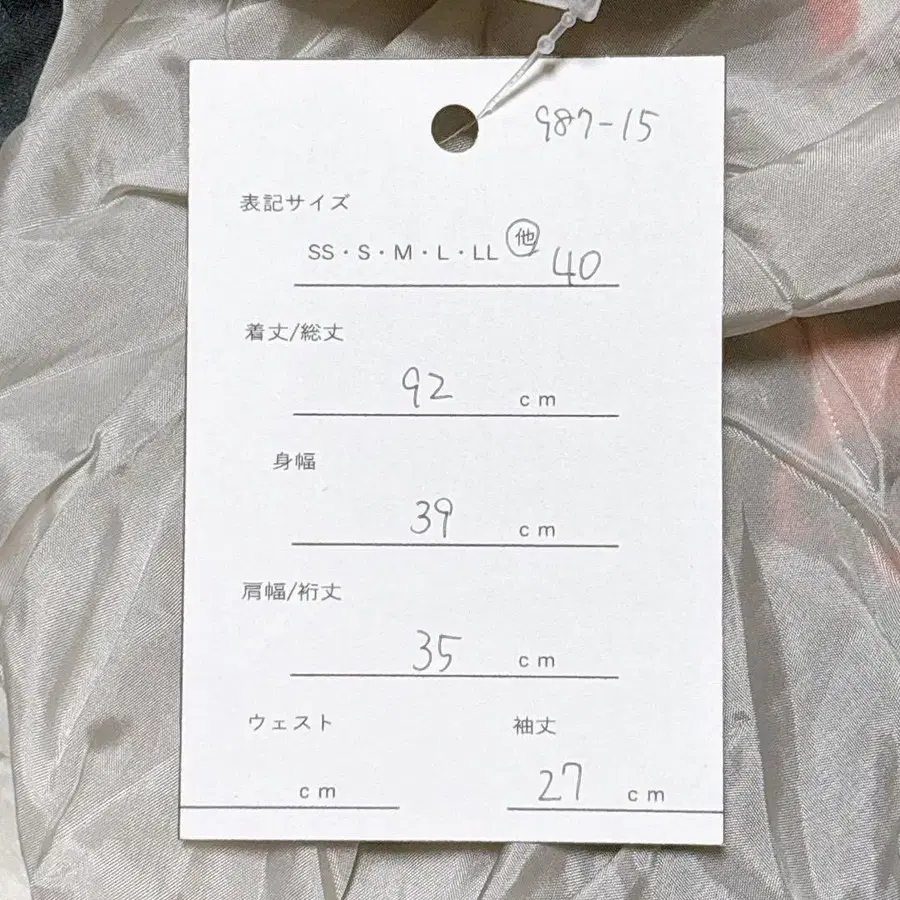 987-15
表記サイズ
SS・S・M・L・LL 他 40
着丈/総丈
92 cm
身幅
39 cm
肩幅/裄丈
35 cm
ウェスト 袖丈
cm 27 cm